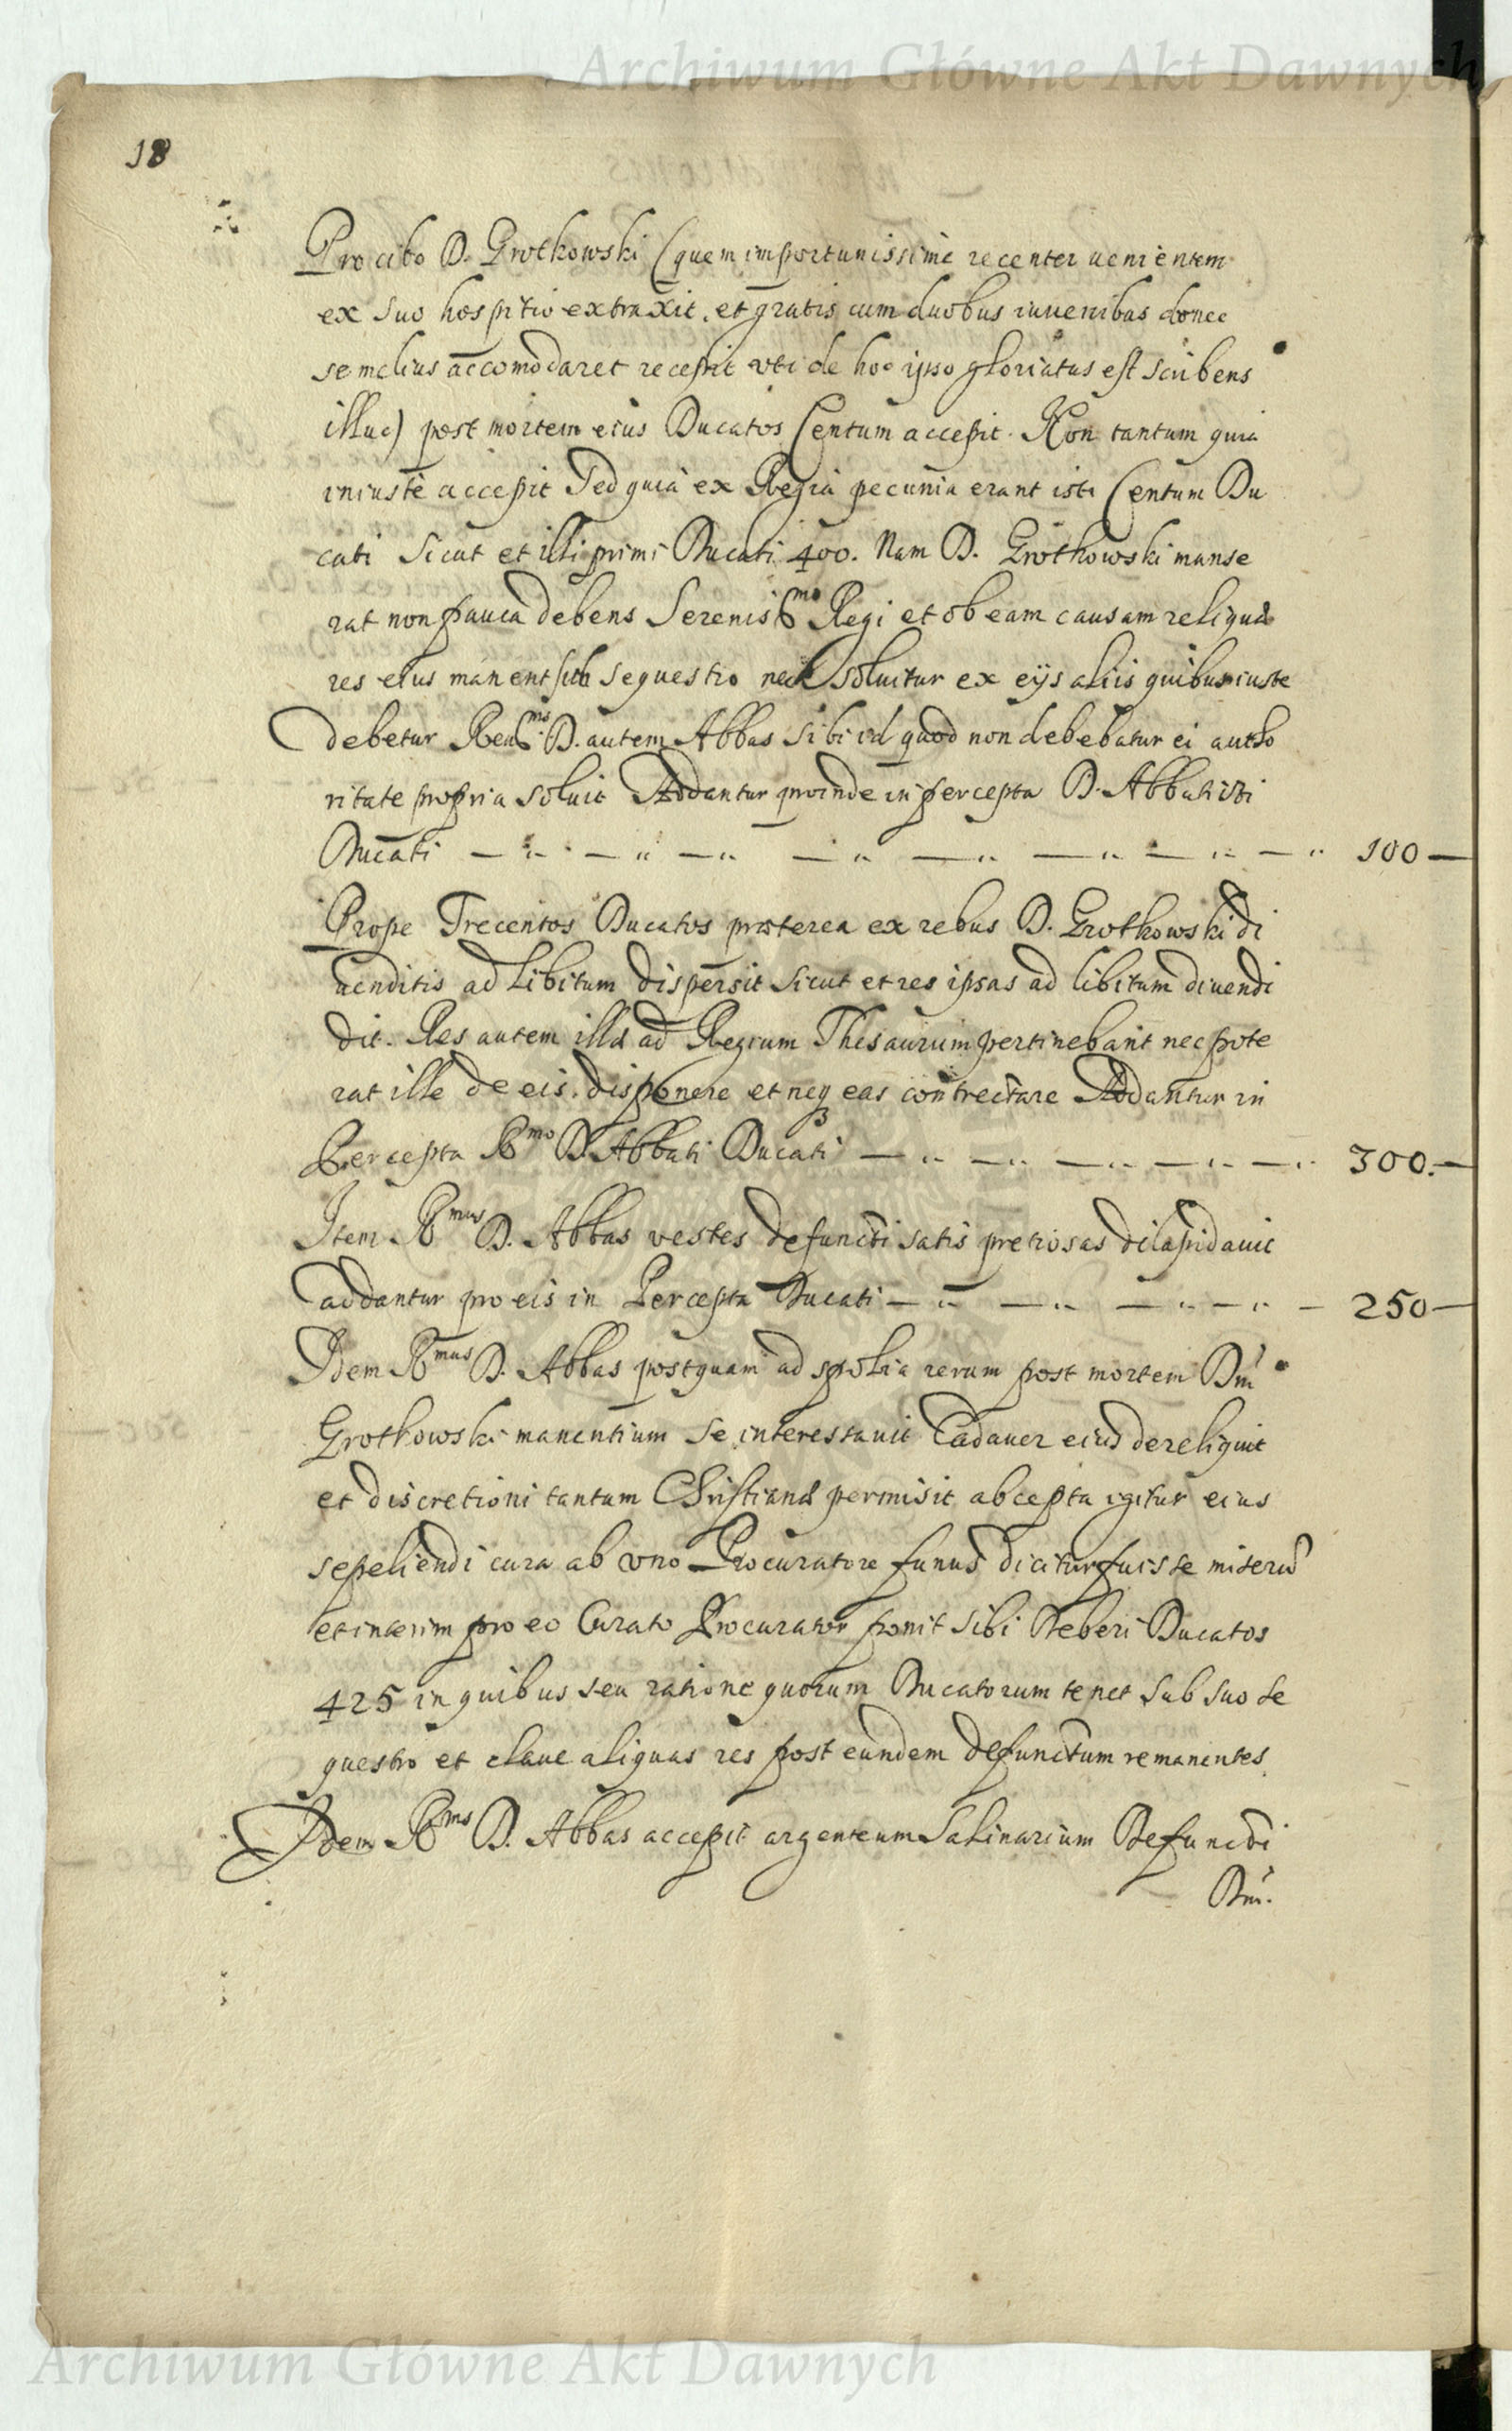 Archiwum Główne Akt Dawnych
18
Pro cibo D. Grotkowski (quem importunissimè recenter uenientem
ex suo hospitio extraxit, et gratis cum duobus iuuenibus donec
se melius accomodaret recepit vti de hoc ipso gloriatus est scribens
illuc) post mortem eius Ducatos Centum accepit. Non tantum quia
iniustè accepit Sed quia ex Regia pecunia erant isti Centum Du
cati Sicut et illi primi Ducati 400. Nam D. Grothowski manse
rat non pauca debens Serenissmo Regi et ob eam causam reliquae
res eius manent sub sequestro nec soluitur ex eijs aliis quibus iuste
debetur Reusmo D. autem Abbas Sibi id quod non debebatur ei autho
ritate propria soluit Addantur proinde in percepta D. Abbati isti
Ducati — 100 —
Prope Trecentos Ducatos praeterea ex rebus D. Grothowski di
uenditis ad Libitum dispersit sicut et res ipsas ad libitum diuendi
dit. Res autem illae ad Regium Thesaurum pertinebant nec pote
rat ille de eis disponere et neq eas contrectare Addantur in
Percepta Rmo D. Abbati Ducati — 300. —
Item Rmus D. Abbas vestes defuncti satis pretiosas dilapidauit
addantur pro eis in Percepta Ducati — 250 —
Idem Rmus D. Abbas postquam ad spolia rerum post mortem Dni
Grothowski manentium se interessauit Cadauer eius dereliquit
et discretioni tantum Christianae permisit abcepta igitur eius
sepeliendi cura ab vno Procuratore funus dicitur fuisse miserū
et interim pro eo Curato Procurator ponit sibi Deberi Ducatos
425 in quibus seu ratione quorum Ducatorum tenet sub suo se
questro et claue aliquas res post eundem defunctum remanentes.
Idem Rmus D. Abbas accepit argenteum Salinarium Defuncti
Dni.
Archiwum Główne Akt Dawnych